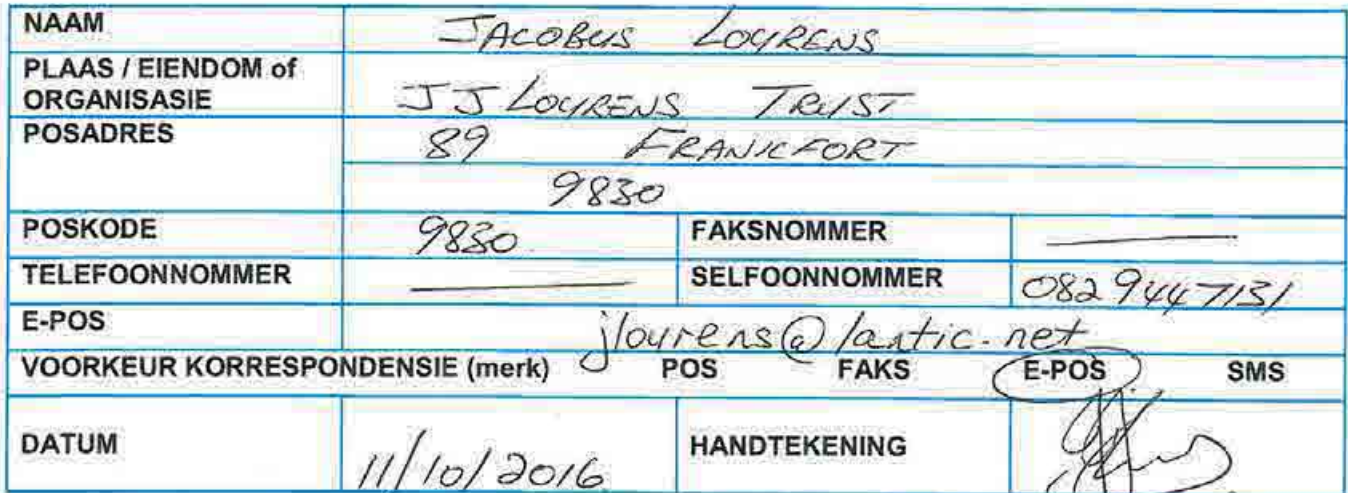 NAAM JACOBUS LOURENS
PLAAS / EIENDOM of
ORGANISASIE JJ LOURENS TRUST
POSADRES 89 FRANKFORT
9830
POSKODE 9830 FAKSNOMMER
TELEFOONNOMMER SELFOONNOMMER 0829447131
E-POS jlourens@lantic.net
VOORKEUR KORRESPONDENSIE (merk) POS FAKS E-POS SMS
DATUM 11/10/2016 HANDTEKENING